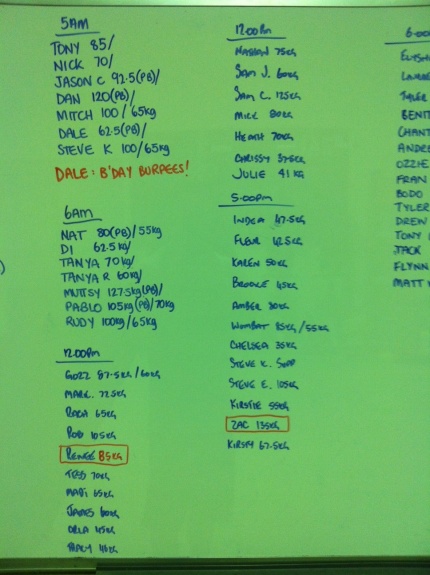 5AM
TONY 85/
NICK 70/
JASON C 92.5(PB)/
DAN 120(PB)/
MITCH 100/65kg
DALE 62.5(PB)/
STEVE K 100/65kg
DALE: B'DAY BURPEES!
6AM
NAT 80(PB)/55kg
DI 62.5kg/
TANYA 70kg/
TANYA R 60kg/
MUTTSY 127.5kg(PB)/
PABLO 105kg(PB)/70kg
RUDY 100kg/65kg
12.00PM
GOZZ 87.5KG/60KG
MARK. 72.5KG
RACH 65KG
ROB 105KG
RENEE 85KG
TESS 70KG
MADI 65KG
JAMES 60KG
ORLA 45KG
12.00PM
HASSAN 75KG
SAM J. 60KG
SAM C. 125KG
MICK 80KG
HEATH 70KG
CHRISSY 37.5KG
JULIE 41KG
5.00PM
INDEA 47.5KG
FLEUR 42.5KG
KAREN 50KG
BROOKE 45KG
AMBER 30KG
WOMBAT 85KG/55KG
CHELSEA 35KG
STEVE K.
STEVE E. 105KG
KIRSTIE 55KG
ZAC 135KG
KIRSTY 67.5KG
TYLER
BENIT
CHANT
ANDRE
OZZIE
FRAN
BODO
TYLER
DREW
TONY
JACK
FLYNN
MATT